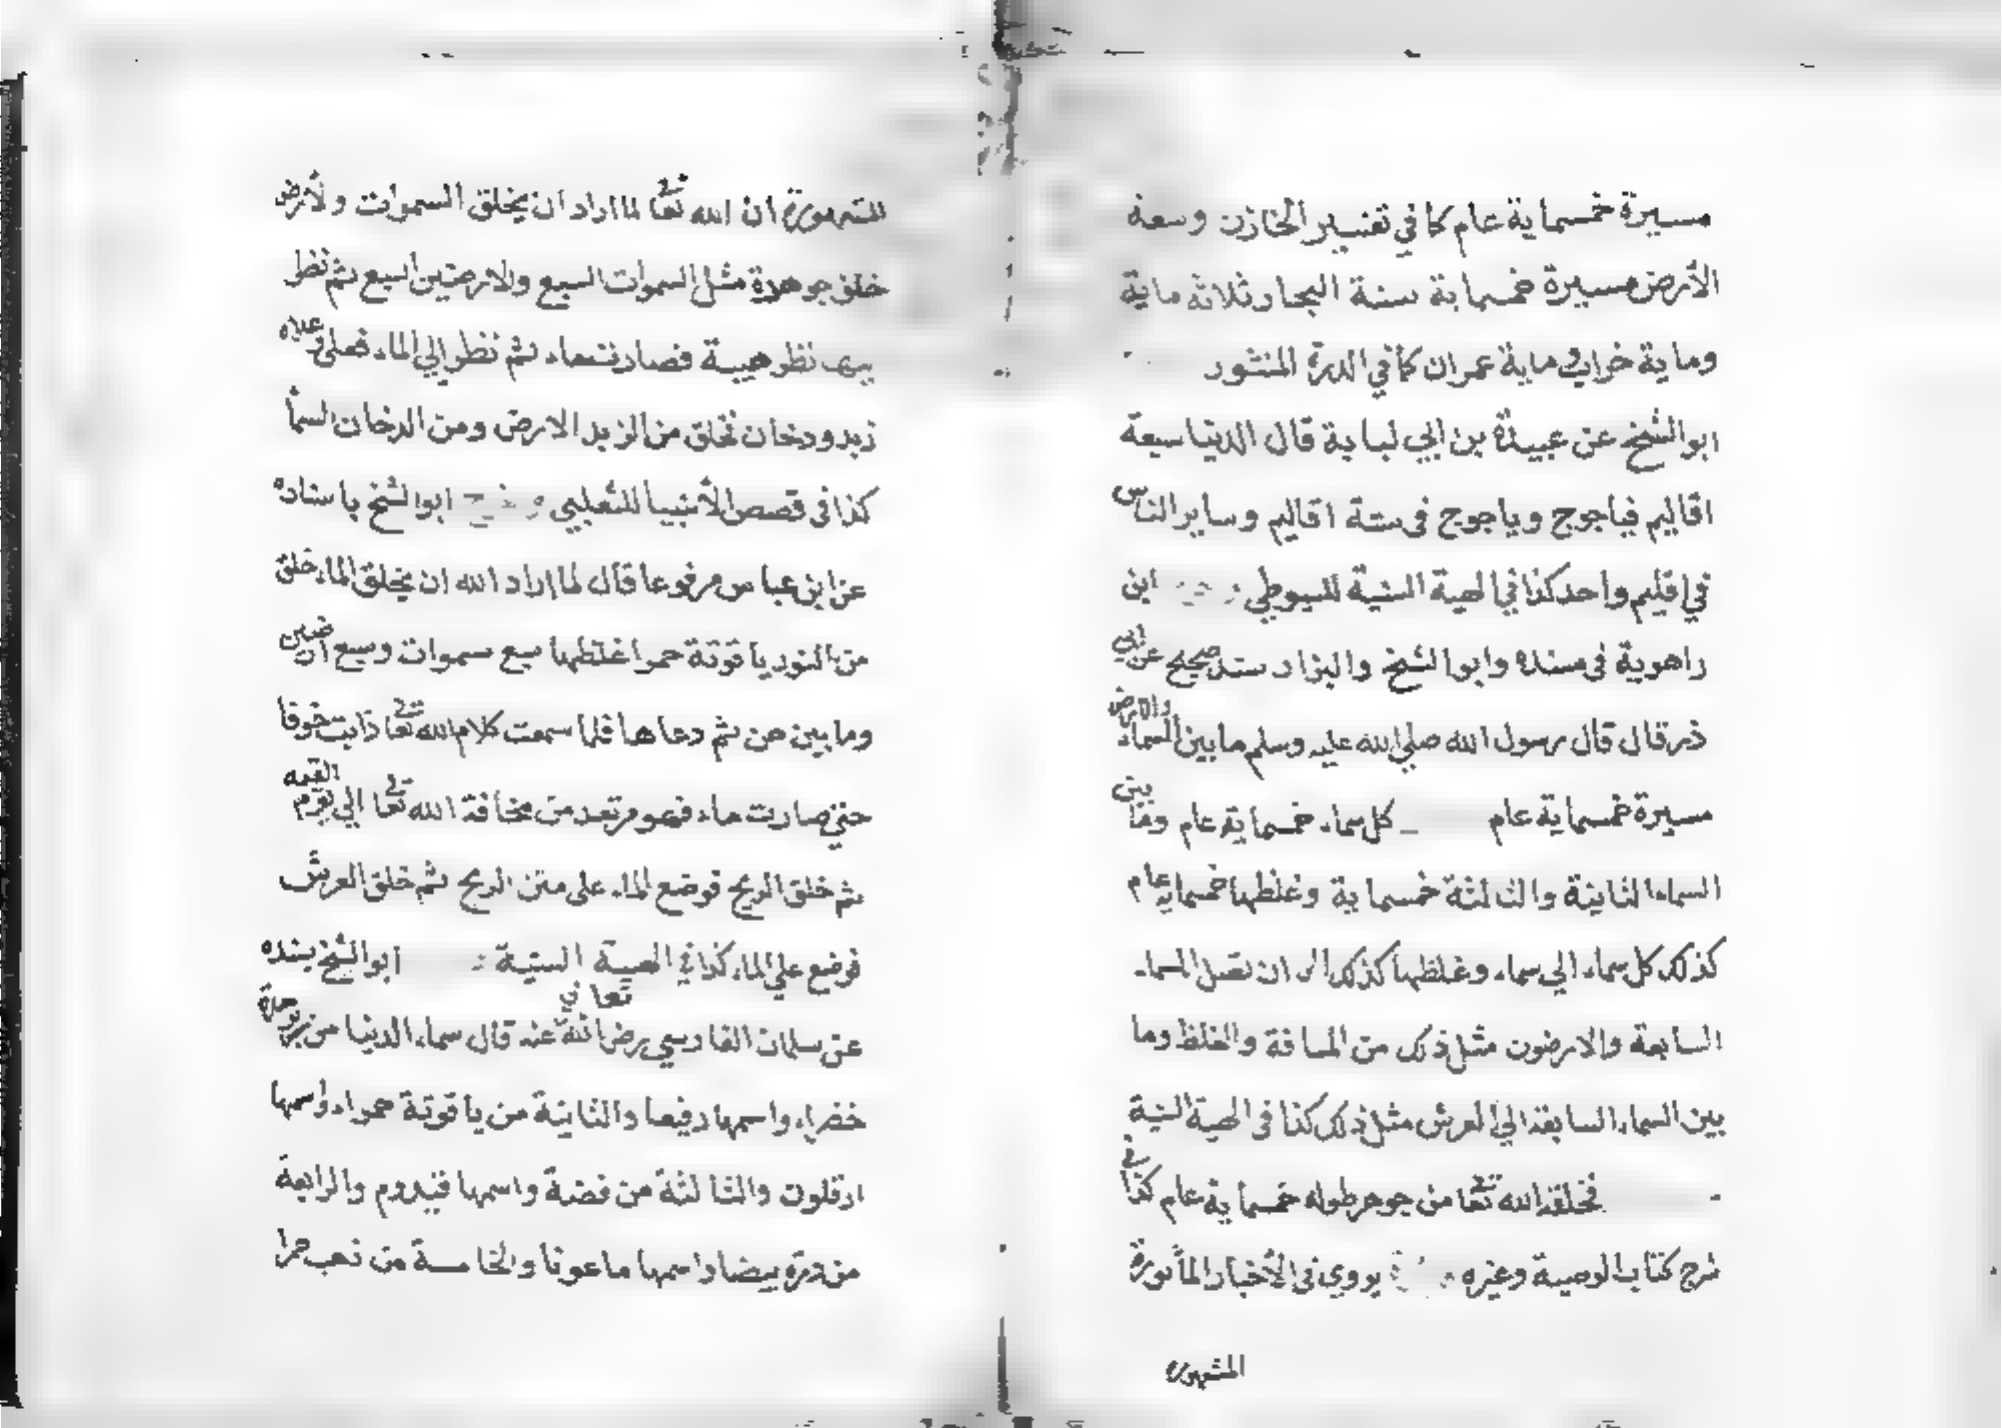 مسيرة خمسماية عام كما في تفسير الخازن وسعة
الأرض مسيرة خمسماية سنة البحار ثلاثه ماية
وماية خراب وماية عمران كما في الدرة المنثور
ابو الشيخ عن عبيدة بن ابي لباية قال الدنيا سبعة
اقاليم فياجوج وياجوج في ستة اقاليم وساير الناس
في اقليم واحد كذا في الهية السنية للسيوطي ابن
راهوية في مسنده وابو الشيخ والبزار سند صحيح عن ابي
ذر قال قال رسول الله صلي الله عليه وسلم ما بين السماء والارض
مسيرة خمسماية عام كل سماء خمسماية عام وما بين
السماء الثانية والثالثة خمسماية وغلظها خمسماية عام
كذلك كل سماء الي سماء وغلظها كذلك الى ان تصل السماء
السابعة والارضون مثل ذلك من المسافة والغلظ وما
بين السماء السابعة الي العرش مثل ذلك كذا في الهية السنية
فخلقه الله تعا من جوهر طوله خمسماية عام كما في
شرح كتاب الوصية وغيره يروي في الأخبار المأثورة
المشهورة
المشهورة ان الله تعا لما اراد ان يخلق السموات ولأرض
خلق جوهرة مثل السموات السبع والارضين السبع ثم نظر
بيها نظر هيبة فصارت ماء ثم نظر الي الماء فعلي وعلاه
زبد ودخان فخلق من الزبد الارض ومن الدخان السمأ
كذا في قصص الأنبيأ للثعلبي ابو الشيخ باسناده
عن ابن عباس مرفوعا قال لما اراد الله ان يخلق الماء خلق
من النور ياقوتة حمرا غلظها سبع سموات وسبع ارضين
وما بين هن ثم دعاها فلما سمعت كلام الله تعا ذابت خوفا
حتي صارت ماء فهو مرتعد من مخافة الله تعا الي يوم القيمه
ثم خلق الريح فوضع الماء على متن الريح ثم خلق العرش
فوضع علي الماء كذا في الهية السنية ابو الشيخ بسنده
عن سلمان الفارسي رضي الله تعالي عنه قال سماء الدنيا من زمردة
خضراء واسمها رفيعا والثانية من ياقوتة حمراء واسمها
ارقلون والثالثة من فضة واسمها قيدوم والرابعة
من درة بيضا واسمها ماعونا والخامسة من ذهب حمرا